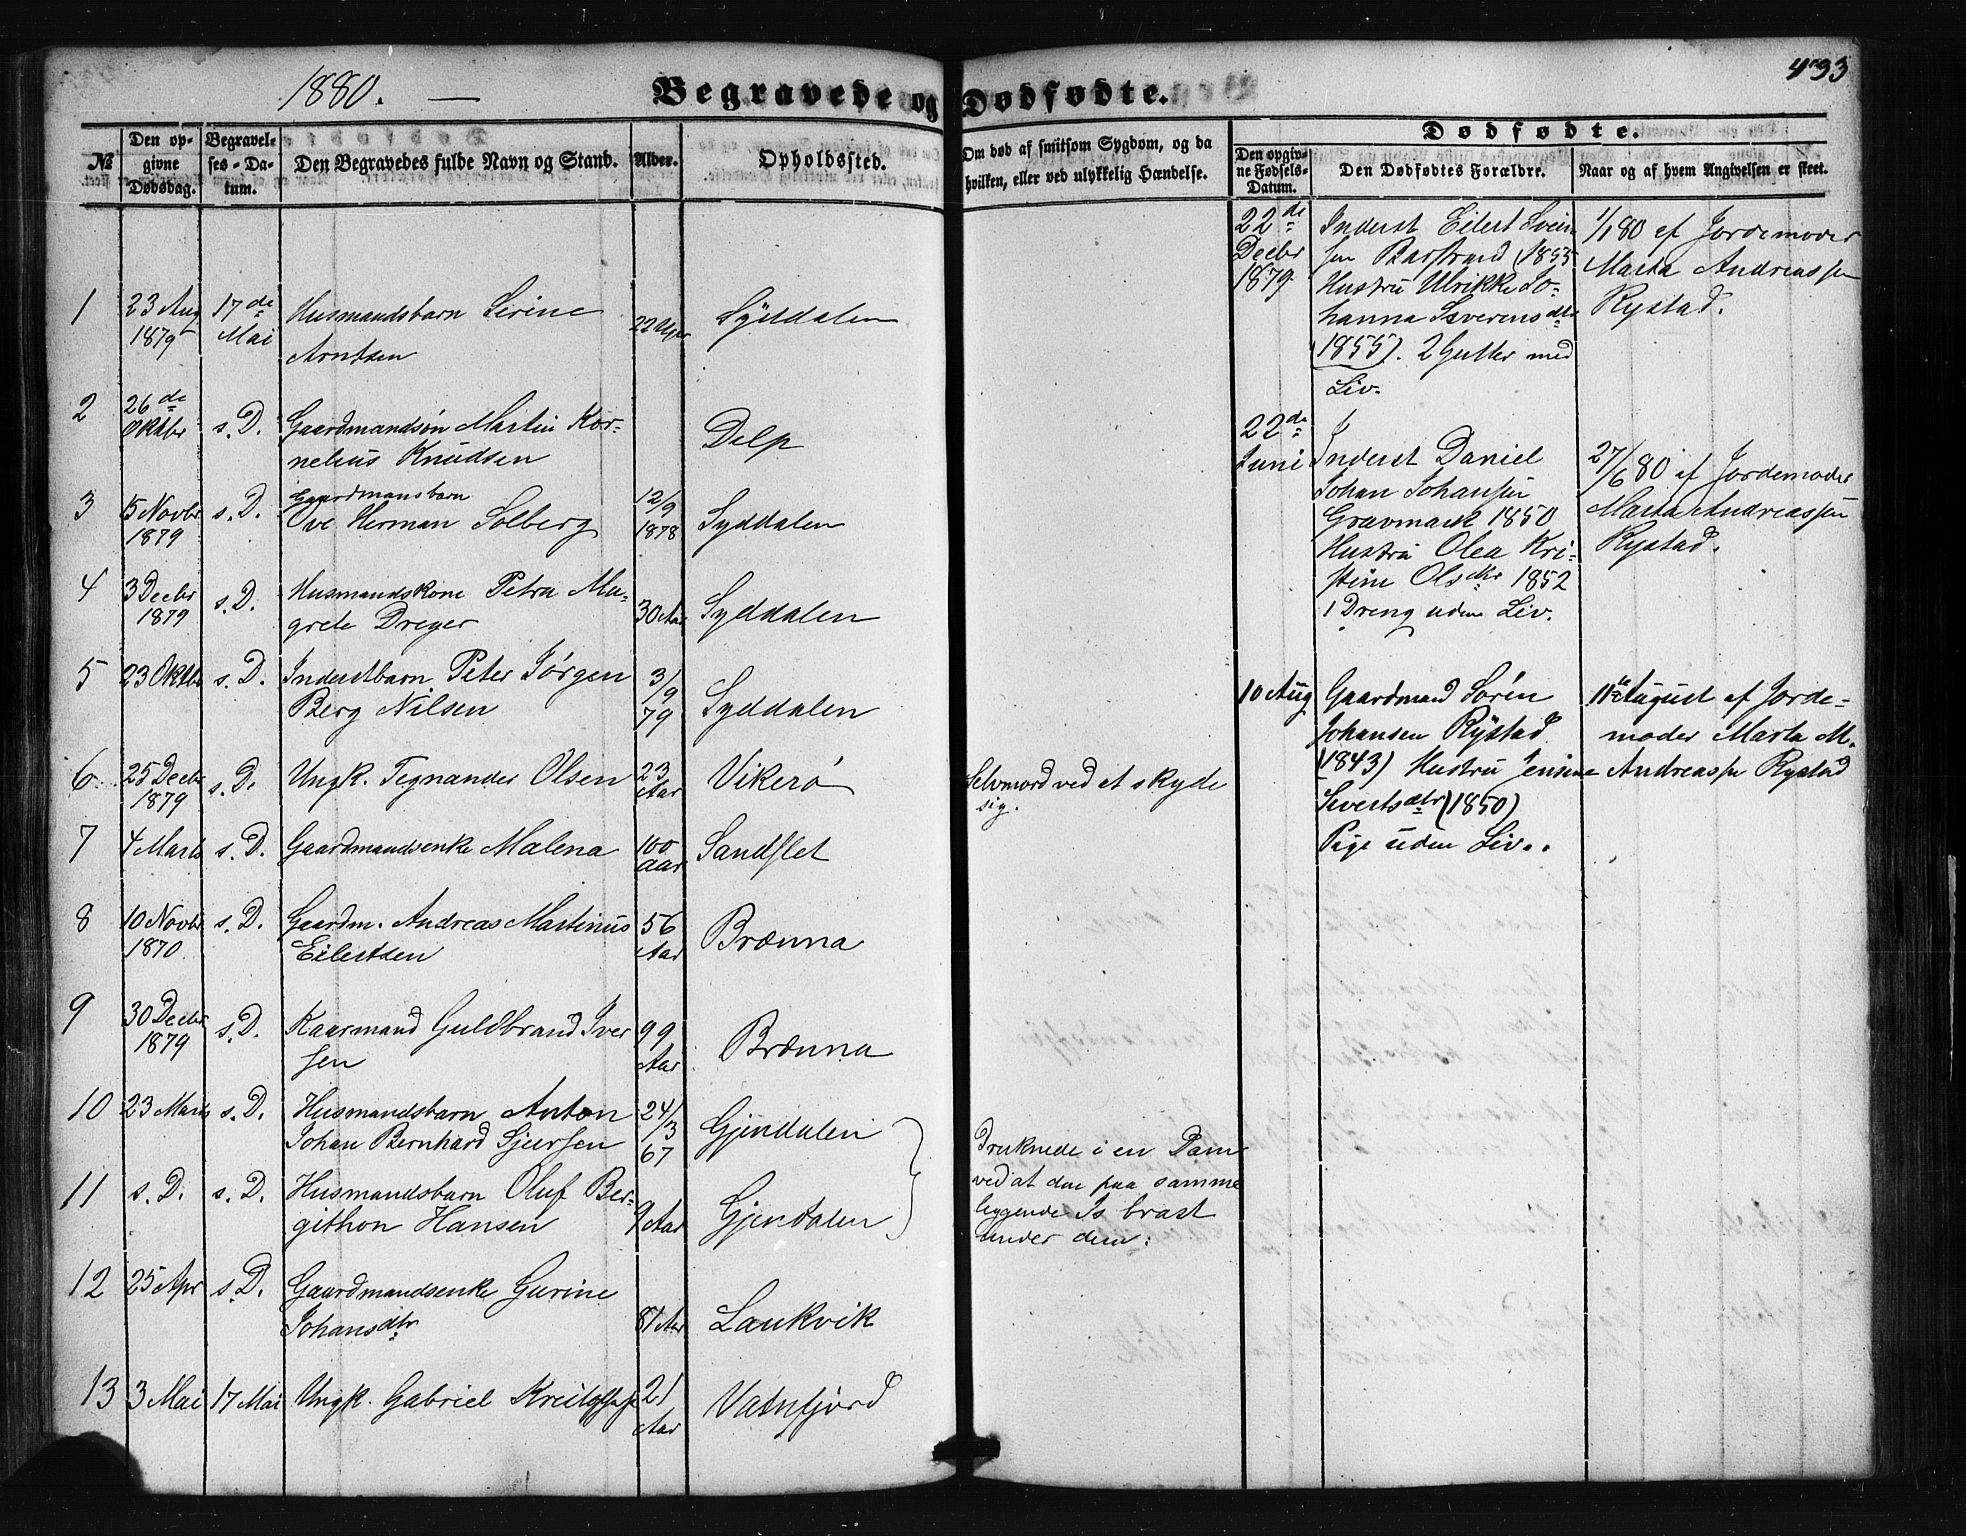 1880. —
Begravede og Dødfødte.
433
№
Den op-
givne
Dødsdag.
Begravel-
ses-Da-
tum.
Den Begravedes fulde Navn og Stand.
Alder.
Opholdssted.
Om død af smitsom Sygdom, og da
hvilken, eller ved ulykkelig Hændelse.
Dødfødte.
Den opgiv-
ne Fødsels-
Datum.
Den Dødfødtes Forældre.
Naar og af hvem Angivelsen er skeet.
1
23 Aug
1879
17de
Mai
Husmandsbarn Serine
Arntsen
22 Uger
Sÿddalen
2
26de
Oktbr
s. D.
Gaardmandsøn Martin Kor-
nelius Knudsen
Delp
3
5 Novbr
1879
s. D.
Gaardmansbarn
Ove Herman Solberg
12/9
1878
Syddalen
4
3 Decbr
1879
s. D.
Husmandskone Petra Ma-
grete Dreyer
30 Aar
Syddalen
5
23 Oktbr
s. D.
Inderstbarn Peter Jørgen
Berg Nilsen
3/9
79
Syddalen
6
25 Decbr
1879
s. D.
Ungk. Tegnander Olsen
23
Aar
Vikerø
Selvmord ved at skyde
sig.
7
4 Marts
s. D.
Gaardmandsenke Malena
100
aar
Sandslet
8
10 Novbr
1870
s. D.
Gaardm. Andreas Martinus
Eilertsen
56
Aar
Brænna
9
30 Decbr
1879
s. D.
Kaarmand Guldbrand Iver
sen
99
Aar
Brænna
10
23 Marts
s. D.
Husmandsbarn Anton
Johan Bernhard Sjursen
24/3
67
Gjendalen
Druknede i en Dam
ved at den paa samme
liggende Is brast
under dem.
11
s. D.
s. D.
Husmandsbarn Oluf Ber-
githon Hansen
9 Aar
Gjendalen
12
25 Apr
s. D.
Gaardmandsenke Gurine
Johansdtr
81 Aar
Laukvik
13
3 Mai
17 Mai
Ungk. Gabriel
21
Aar
Vatnfjord
22de
Decbr
1879
Inderst Eilert Svein
sen Barstrand (1855
Hustru Ulrikke Jo-
hanna Severensdtr
(1855). 2 Gutter med
Liv.
1/1 80 af Jordemoder
Marta Andreassen
Rystad.
22de
Juni
Inderst Daniel
Johan Johansen
Gravmark 1850
Hustru Olea Kri-
stine Olsdtr 1852
1 Dreng uden Liv.
27/6 80 af Jordemoder
Marta Andreassen
Rystad.
10 Aug
Gaardmand Sørén
Johansen Rÿstad
(1843) Hustru Jensine
Sivertsdtr (1850)
Pige uden Liv.
11te August af Jorde-
moder Marta M.
Andreassen Rystad